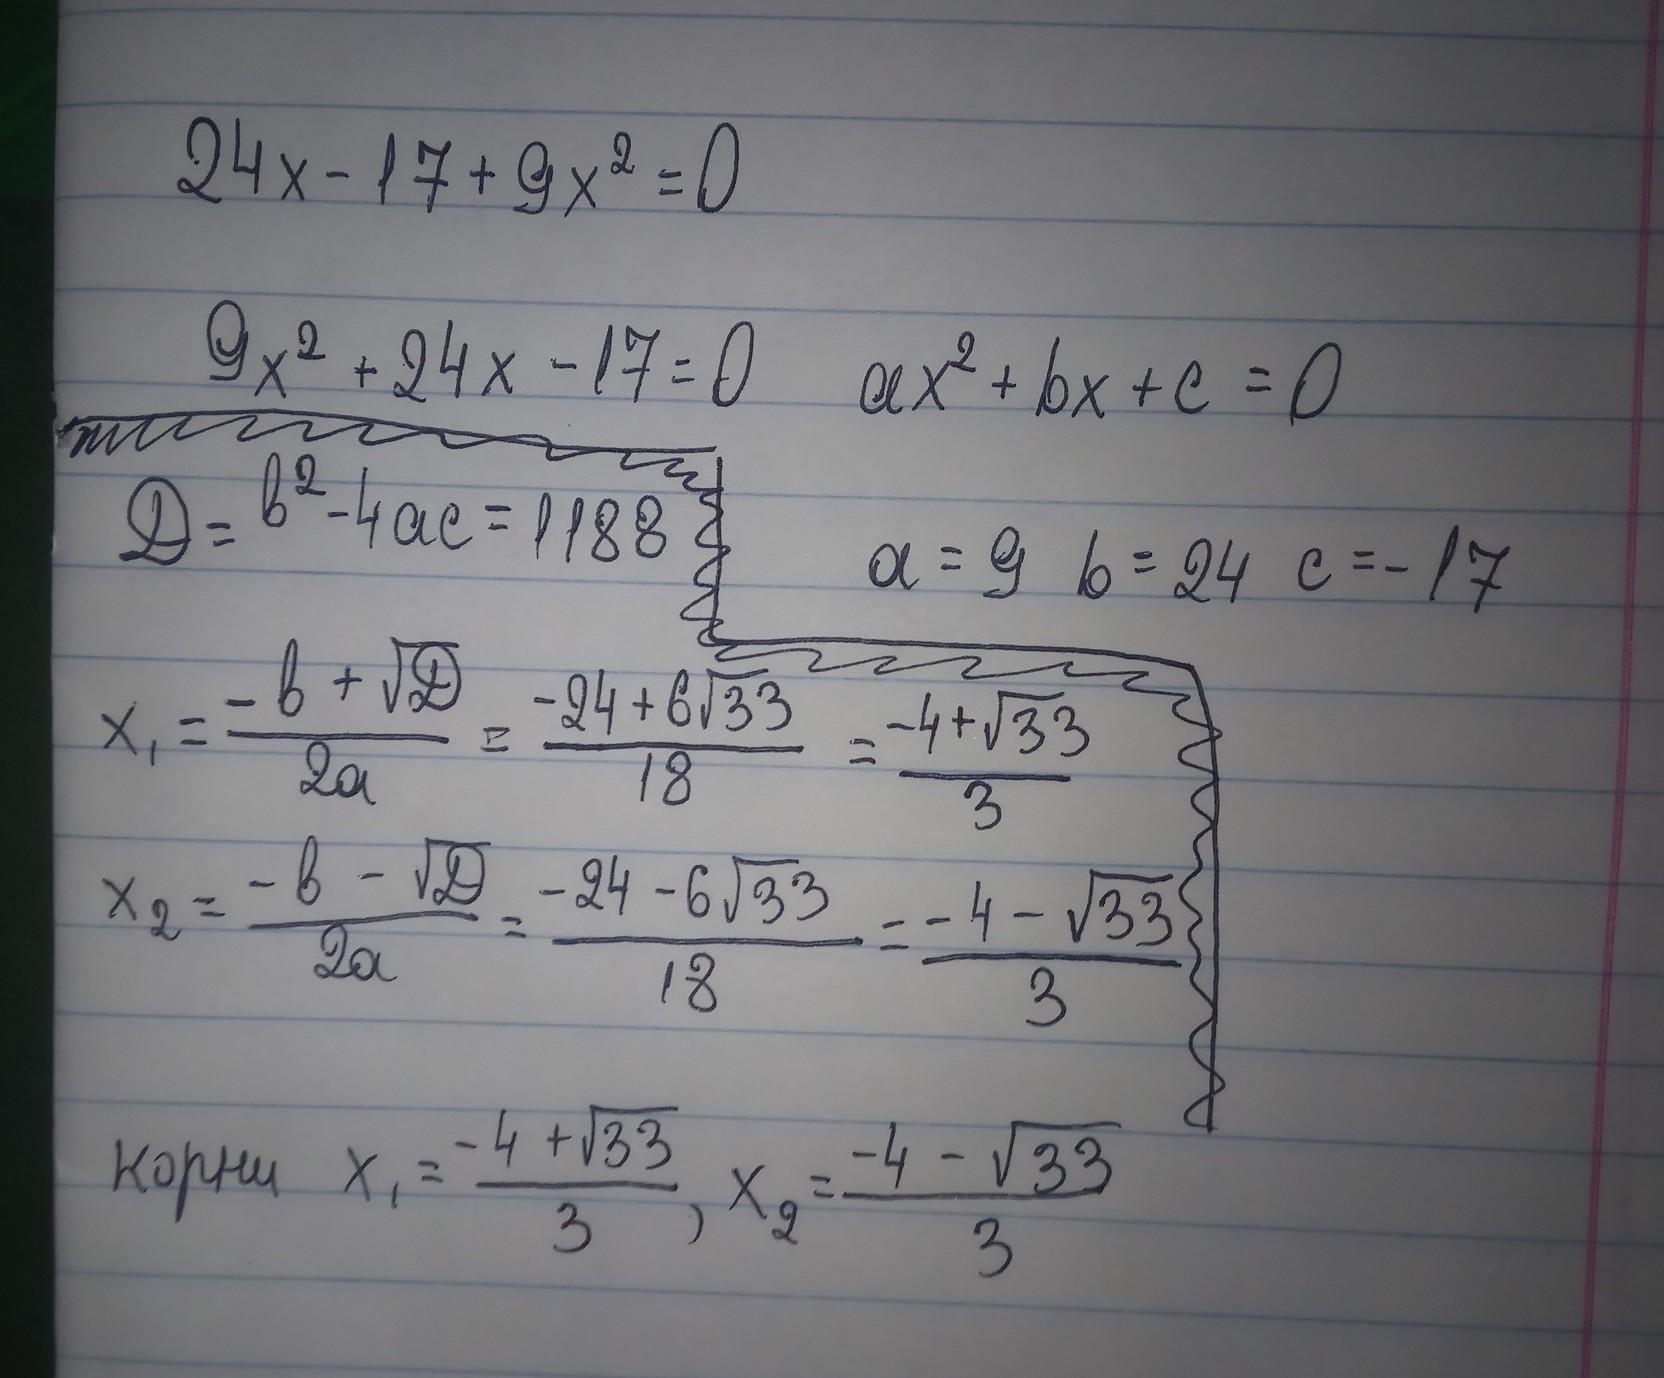 24x - 17 + 9x² = 0
9x² + 24x - 17 = 0 ax² + bx + c = 0
D = b² - 4ac = 1188
a = 9 b = 24 c = -17
x₁ = (-b + √D)/2a = (-24 + 6√33)/18 = (-4 + √33)/3
x₂ = (-b - √D)/2a = (-24 - 6√33)/18 = (-4 - √33)/3
корни x₁ = (-4 + √33)/3, x₂ = (-4 - √33)/3